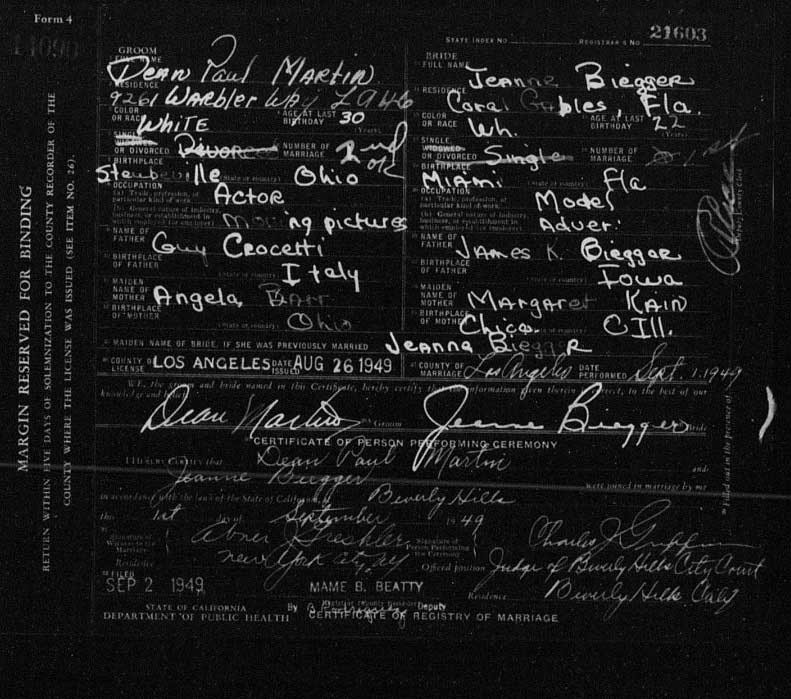 Form 4
11090
STATE INDEX NO.
REGISTRAR'S NO. 21603
GROOM
FULL NAME
Dean Paul MARTIN
RESIDENCE
9261 WARbler WAy L A 46
COLOR OR RACE WHITE
AGE AT LAST BIRTHDAY 30 (Years)
SINGLE WIDOWED OR DIVORCED Divorced
NUMBER OF MARRIAGE 2nd ok
BIRTHPLACE Steubeville Ohio
OCCUPATION
(a) Trade, profession, or particular kind of work Actor
(b) General nature of industry, business, or establishment in which employed (or employer) moving pictures
NAME OF FATHER Guy Crocetti
BIRTHPLACE OF FATHER (State or country) Italy
MAIDEN NAME OF MOTHER Angela Barr
BIRTHPLACE OF MOTHER (State or country) Ohio
BRIDE
FULL NAME
Jeanne Biegger
RESIDENCE
Coral Gables, Fla.
COLOR OR RACE Wh.
AGE AT LAST BIRTHDAY 22 (Years)
SINGLE WIDOWED OR DIVORCED Single
NUMBER OF MARRIAGE 1st
BIRTHPLACE Miami (State or country) Fla
OCCUPATION
(a) Trade, profession, or particular kind of work Model
(b) General nature of industry, business, or establishment in which employed (or employer) Adver.
NAME OF FATHER JAMES K. Bieggar
BIRTHPLACE OF FATHER (State or country) Iowa
MAIDEN NAME OF MOTHER MARgaret KAIN
BIRTHPLACE OF MOTHER Chica. (State or country) Ill.
MAIDEN NAME OF BRIDE, IF SHE WAS PREVIOUSLY MARRIED Jeanna Biegger
COUNTY OF LICENSE LOS ANGELES DATE ISSUED AUG 26 1949
COUNTY OF MARRIAGE Los Angeles DATE PERFORMED Sept. 1, 1949
WE, the groom and bride named in this Certificate, hereby certify that the information given therein is correct, to the best of our
knowledge and belief.
Dean Martin Groom Jeanne Biegger Bride
CERTIFICATE OF PERSON PERFORMING CEREMONY
I HEREBY CERTIFY that Dean Paul Martin and
Jeanne Biegger were joined in marriage by me
in accordance with the laws of the State of California, at Beverly Hills
this 1st day of September 1949
Signature of Witness to the Marriage Abner J Greshler
Residence New York City, NY
Signature of Person Performing the Ceremony Charles J. Griffin
Official position Judge of Beverly Hills City Court
Residence Beverly Hills Calif
FILED
SEP 2 1949 MAME B. BEATTY
By Deputy
STATE OF CALIFORNIA
DEPARTMENT OF PUBLIC HEALTH
CERTIFICATE OF REGISTRY OF MARRIAGE
MARGIN RESERVED FOR BINDING
RETURN WITHIN FIVE DAYS OF SOLEMNIZATION TO THE COUNTY RECORDER OF THE
COUNTY WHERE THE LICENSE WAS ISSUED (SEE ITEM NO. 26).
Filled out in the presence of